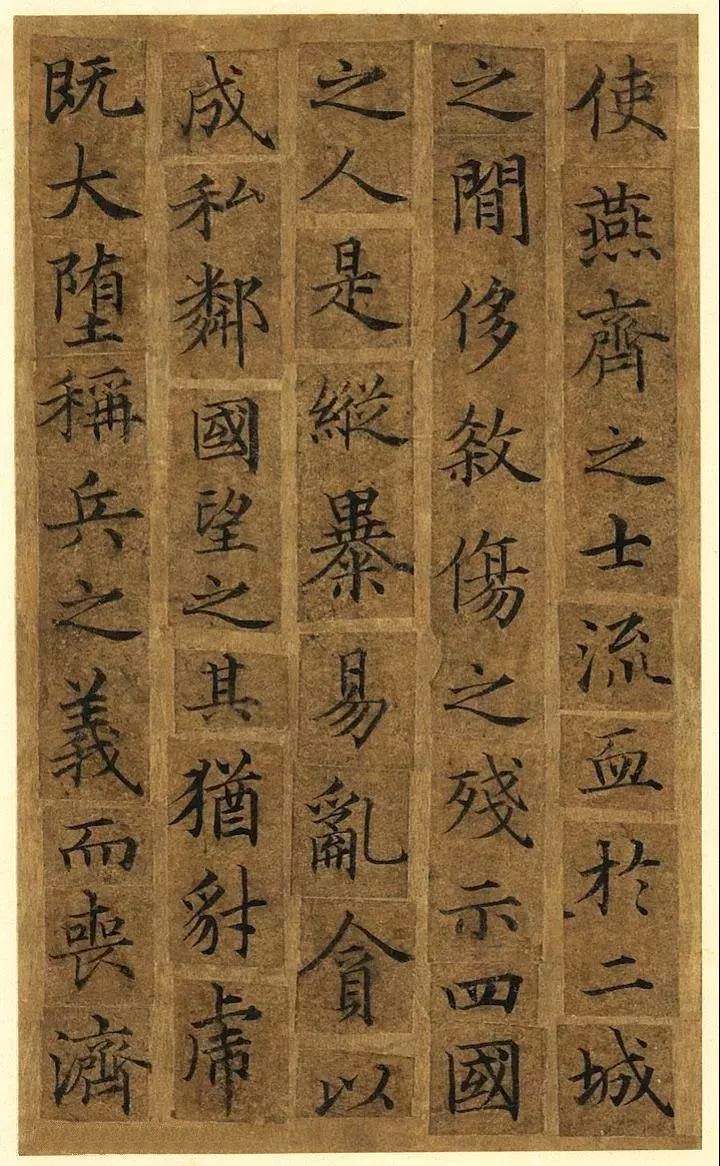 使燕齊之士流血於二城
之間侈敘傷之殘示四國
之人是縱暴易亂貪以
成私鄰國望之其猶豺虎
既大墮稱兵之義而喪濟